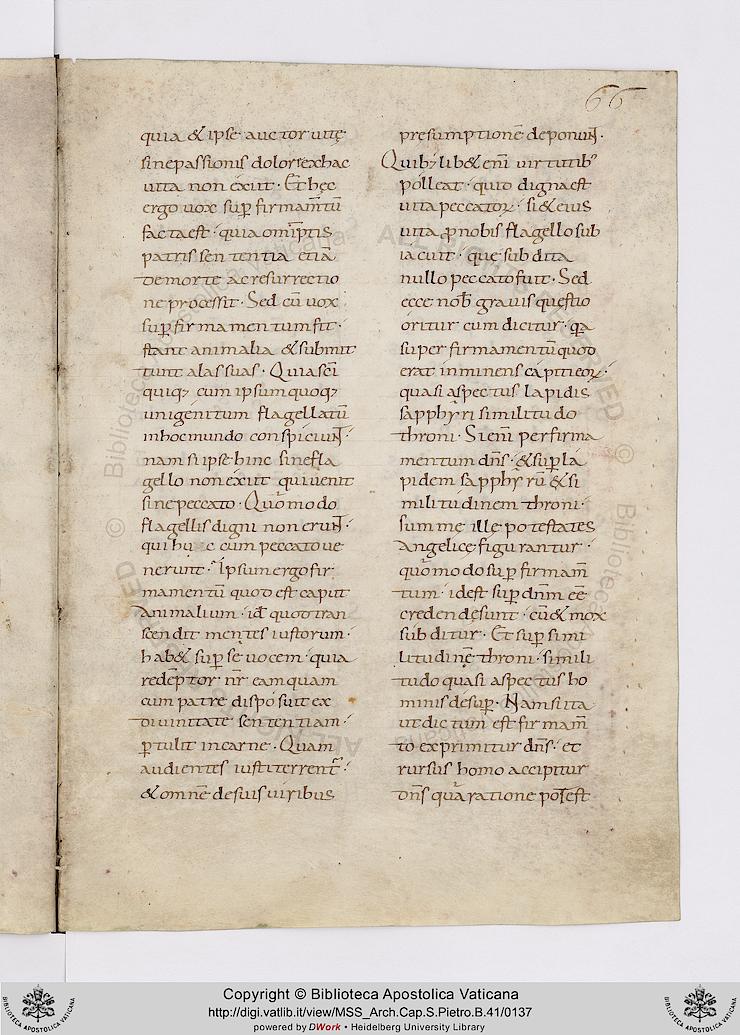 66
quia & ipse auctor uitę
sine passionis dolore ex hac
uita non exiit · Et hęc
ergo uox sup̄ firmam̄tū
facta est · quia om̄iptis
patris sententia etiā
de morte ac resurrectio
ne processit · Sed cū uox
sup̄ firmamentum fit ·
stant animalia & submit
tunt alas suas · Quia sc̄i
quiq; cum ipsum quoq;
unigenitum flagellatū
in hoc mundo conspiciunt ·
nam si ipse hinc sine fla
gello non exiit qui uenit
sine peccato · Quomodo
flagellis digni non erunt ·
qui huc cum peccato ue
nerunt · Ipsum ergo fir
mamentū quod est caput
animalium · id quod tran
scendit mentes iustorum ·
hab& sup̄ se uocem · quia
redēptor · nr̄ eam quam
cum patre disposuit ex
diuinitate sententiam ·
ꝑtulit in carne · Quam
audientes iusti terrent᷑ ·
& omnē de suis uiribus
presumptionē deponunt ·
Quib; lib& eni uirtutib᷒
polleat · quid digna est
uita peccatoꝝ · si & eius
uita ꝓ nobis flagello sub
iacuit · quę subdita
nullo peccato fuit · Sed
ecce nob̄ grauis questio
oritur cum dicitur · qa
super firmamentū quod
erat inminens capiti eoꝝ ·
quasi aspectus lapidis
sapphyri similitudo
throni · Si eni per firma
mentum dn̄s · & sup̄ la
pidem sapphyrū & si
militudinem throni ·
summę illę potestates
angelicę figurantur ·
quomodo sup̄ firmam̄
tum · id est sup̄ dn̄m eē
credendę sunt · cū & mox
subditur · Et sup̄ simi
litudinē throni · simili
tudo quasi aspectus ho
minis desup̄ · Nam si ita
ut dictum est firmam̄
to exprimitur dn̄s · et
rursus homo accipitur
dn̄s qua ratione potest
Copyright © Biblioteca Apostolica Vaticana
http://digi.vatlib.it/view/MSS_Arch.Cap.S.Pietro.B.41/0137
powered by DWork • Heidelberg University Library